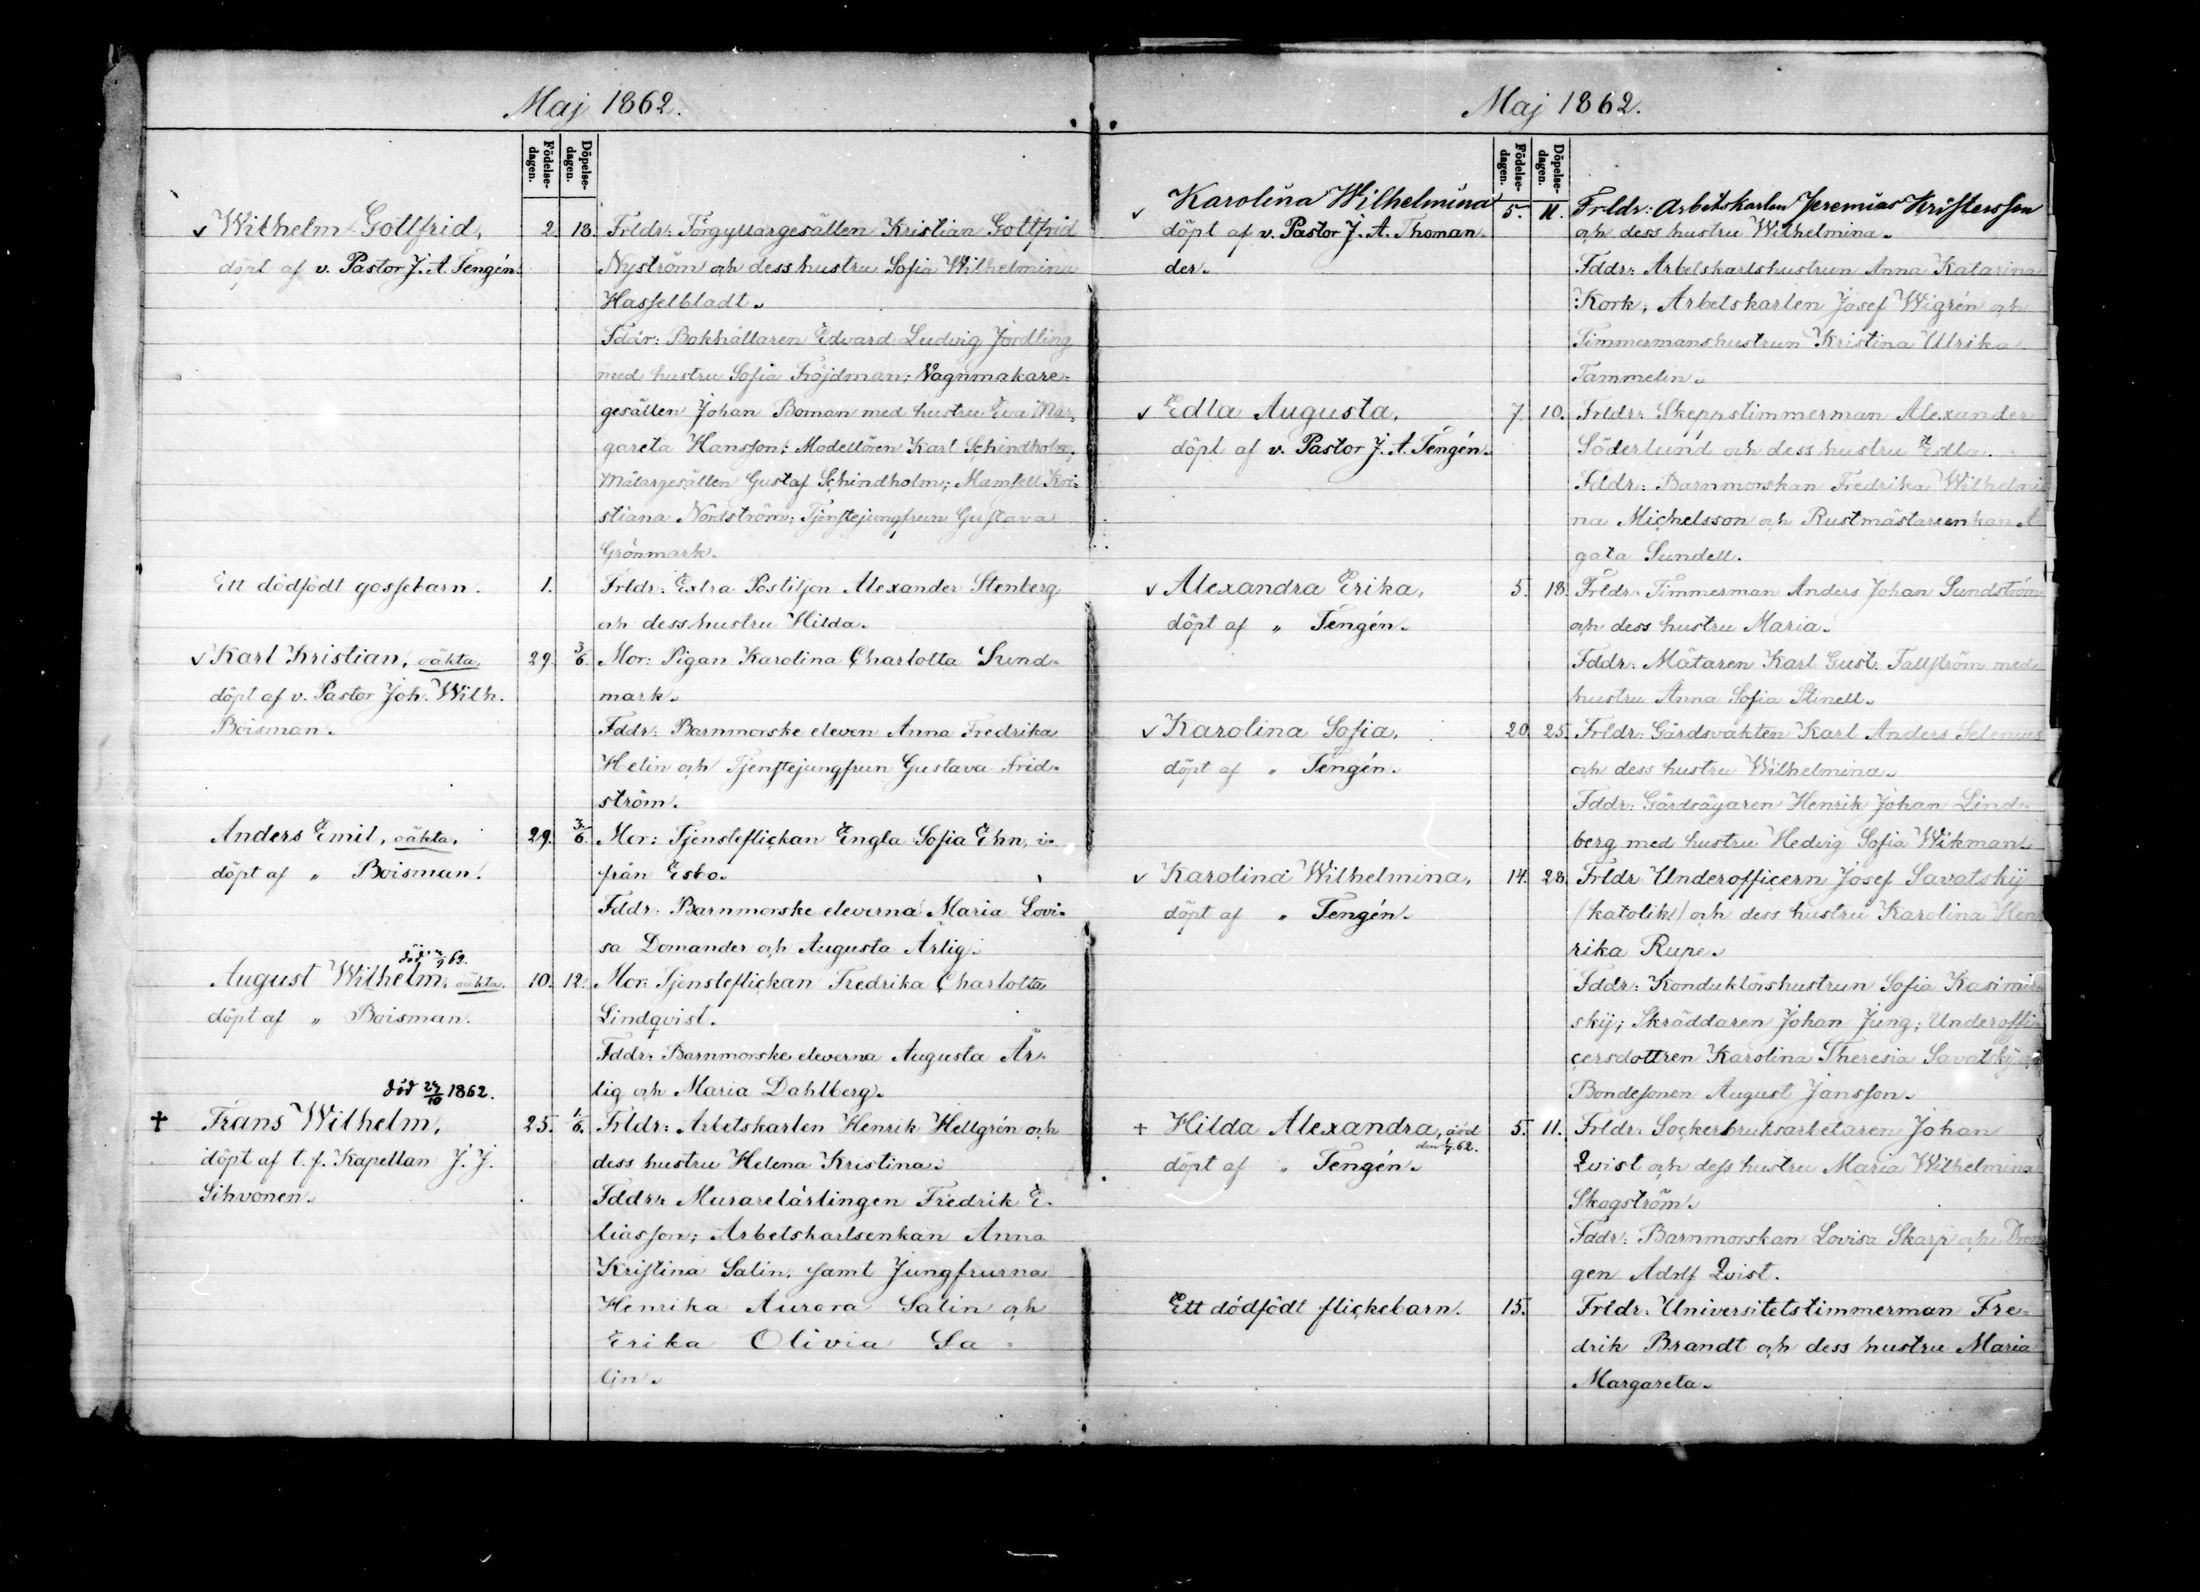 Maj 1862.
Födelse-
dagen.
Döpelse-
dagen.
Wilhelm Gottfrid,
döpt af v. Pastor J. A. Tengén.
2. 18.
Frldr: Förgyllargesällen Kristian Gottfrid
Nyström och dess hustru Sofia Wilhelmina
Hasselbladt.
Fddr: Bokhållaren Edvard Ludvig Jordling
med hustru Sofia Fröjdman; Vagnmakare-
gesällen Johan Boman med hustru Eva Mar-
gareta Hansson; Modellören Karl Schindholm,
Målargesällen Gustaf Schindholm; Mamsell Kri-
stiana Nordström; Tjenstejungfrun Gustava
Grönmark.
Ett dödfödt gossebarn.
1.
Frldr: Extra Postiljon Alexander Stenberg
och dess hustru Hilda.
Karl Kristian, oäkta,
döpt af v. Pastor Joh. Wilh.
Boisman.
29. 3/6.
Mor: Pigan Karolina Charlotta Sund-
mark.
Fddr: Barnmorske eleven Anna Fredrika
Helin och Tjenstejungfrun Gustava Frid-
ström.
Anders Emil, oäkta,
döpt af „ Boisman.
29. 3/6.
Mor: Tjensteflickan Engla Sofia Ehn,
från Esbo.
Fddr: Barnmorske eleverna Maria Lovi-
sa Domander och Augusta Ärlig.
död /9 62.
August Wilhelm, oäkta,
döpt af „ Boisman.
10. 12.
Mor: Tjensteflickan Fredrika Charlotta
Lindqvist.
Fddr: Barnmorske eleverna Augusta Är-
lig och Maria Dahlberg.
död 27/10 1862.
† Frans Wilhelm,
döpt af t. f. Kapellan J. J.
Sihvonen.
25. 1/6.
Frldr: Arbetskarlen Henrik Hellgrén och
dess hustru Helena Kristina.
Fddr: Murarelärlingen Fredrik E-
liasson; Arbetskarlsenkan Anna
Kristina Salin, samt Jungfrurna
Henrika Aurora Salin och
Erika Olivia Sa-
lin.
Maj 1862.
Födelse-
dagen.
Döpelse-
dagen.
Karolina Wilhelmina
döpt af v. Pastor J. A. Thoman-
der.
5. 11.
Frldr: Arbetskarlen Jeremias Kristersson
och dess hustru Wilhelmina.
Fddr: Arbetskarlshustrun Anna Katarina
Kork, Arbetskarlen Josef Wigrén och
Timmermanshustrun Kristina Ulrika
Tammelin.
Edla Augusta,
döpt af v. Pastor J. A. Tengén.
7. 10.
Frldr: Skeppstimmerman Alexander
Söderlund och dess hustru Edla.
Fddr: Barnmorskan Fredrika Wilhelmi-
na Michelsson och Rustmästareenkan A
gata Sundell.
Alexandra Erika,
döpt af „ Tengén.
5. 18.
Frldr: Timmerman Anders Johan Sundström
och dess hustru Maria.
Fddr: Mätaren Karl Gust. Tallström med
hustru Anna Sofia Stinell.
Karolina Sofia,
döpt af „ Tengén.
20. 25.
Frldr: Gårdsvakten Karl Anders Selenius
och dess hustru Wilhelmina.
Fddr: Gårdsägaren Henrik Johan Lind-
berg med hustru Hedvig Sofia Wikman.
Karolina Wilhelmina,
döpt af „ Tengén.
14. 28.
Frldr Underofficern Josef Savatskij
(katolik) och dess hustru Karolina Hen
rika Rupe.
Fddr: Konduktörshustrun Sofia Kasimir
skij; Skräddaren Johan Jung; Underoffi
cersdottren Karolina Theresia Savatskij och
Bondesonen August Jansson.
+ Hilda Alexandra, död
den 1/7.62.
döpt af „ Tengén.
5. 11.
Frldr: Sockerbruksarbetaren Johan
Qvist och dess hustru Maria Wilhelmina
Skogström.
Fddr: Barnmorskan Lovisa Skarp och Drän
gen Adolf Qvist.
Ett dödfödt flickebarn.
15.
Frldr: Universitetstimmerman Fre-
drik Brandt och dess hustru Maria
Margareta.